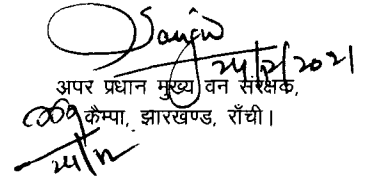 Sanjiv
24/2/2021
अपर प्रधान मुख्य वन संरक्षक,
कैम्पा, झारखण्ड, राँची।
24/12